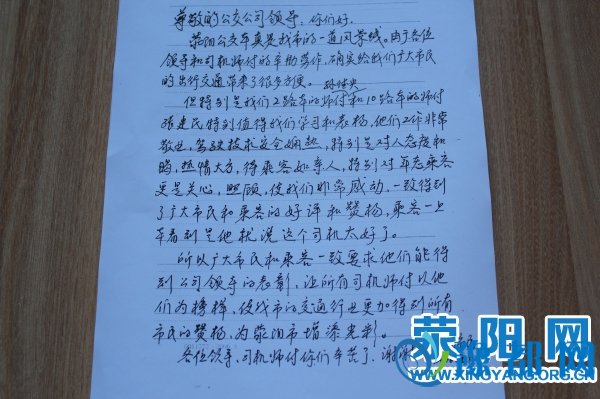 尊敬的公交公司领导：你们好。
荥阳公交车真是我市的一道风景线。由于各位
领导和司机师付的辛勤劳作，确实给我们广大市民
的出行交通带来了很多方便。
但特别是我们2路车的师付和10路车的师付
张建民特别值得我们学习和表扬，他们工作非常
敬业，驾驶技术安全娴熟，特别是对人态度和
蔼，热情大方，待乘客如亲人，特别对年老乘客
更是关心，照顾，使我们非常感动，一致得到
了广大市民和乘客的好评和赞扬，乘客一上
车看到是他就说这个司机太好了。
所以广大市民和乘客一致要求他们能得
到公司领导的表彰，让所有司机师付以他
们为榜样，使我市的交通行业更加得到所有
市民的赞扬，为荥阳市增添光彩。
各位领导、司机师付你们辛苦了，谢谢
荥阳网
WWW.XINGYANG.ORG.CN